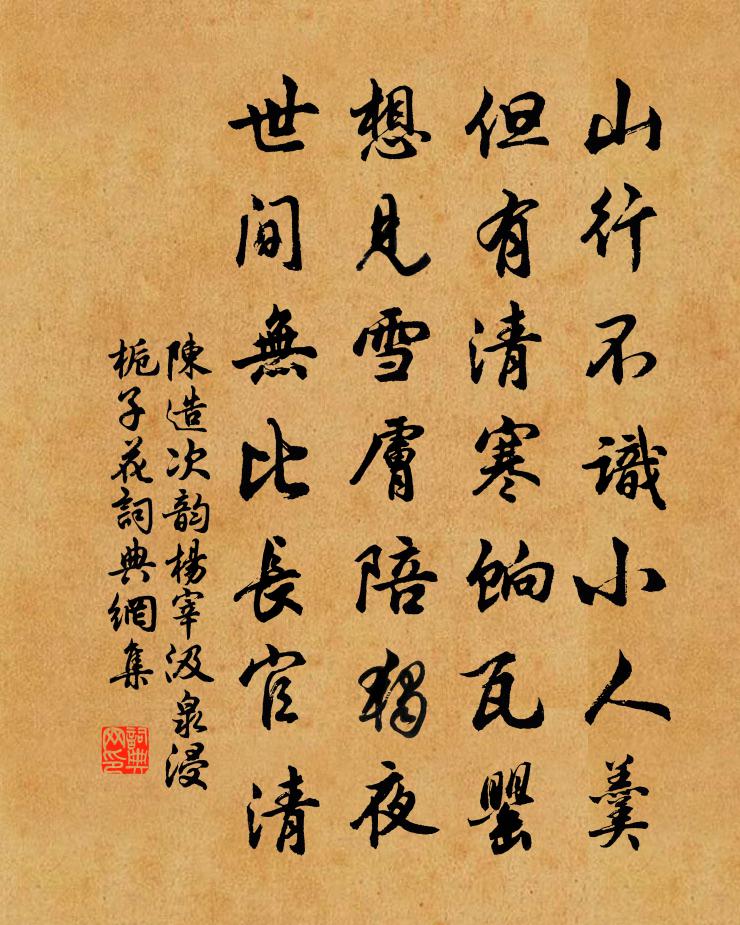 山行不識小人羹
但有清寒餉瓦罌
想見雪膚陪獨夜
世間無比長官清
陳造次韵楊宰汲泉浸
栀子花詞典網集
詞典
网印